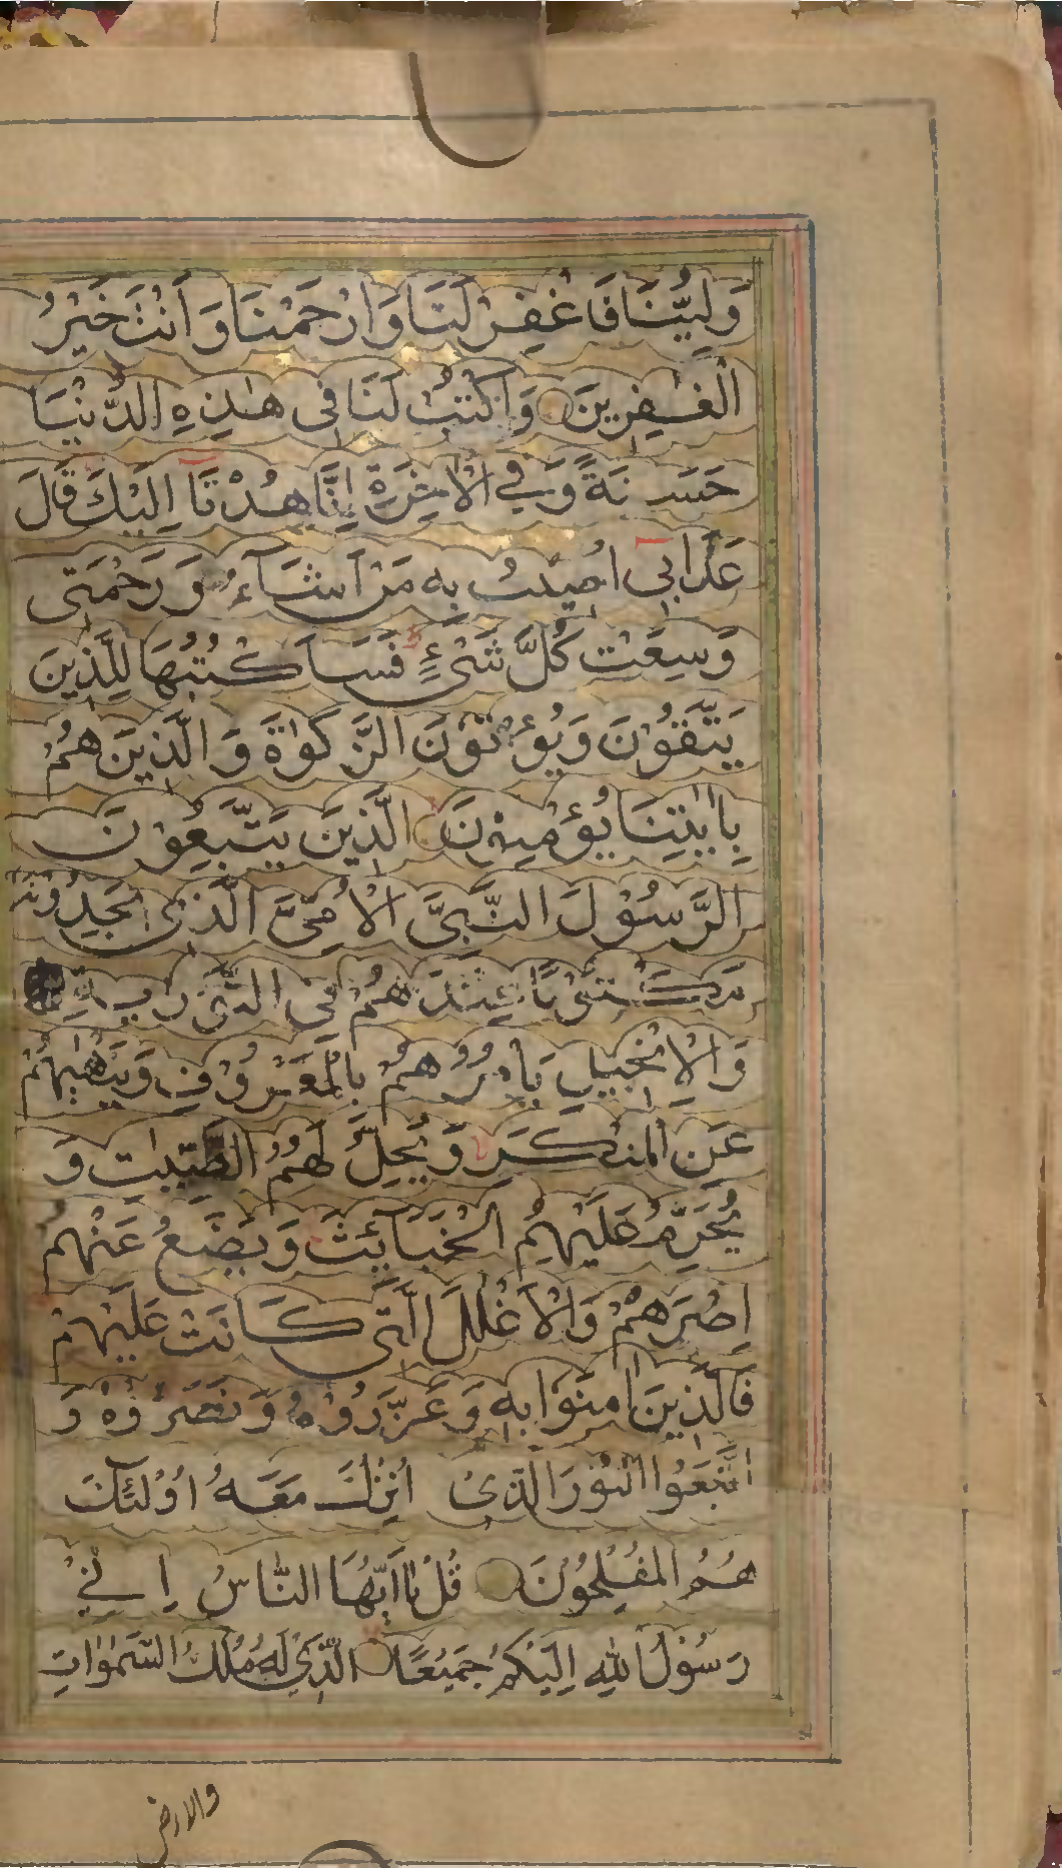 وَلِيُّنَا فَاغْفِرْ لَنَا وَارْحَمْنَا وَاَنْتَ خَيْرُ
الْغٰفِرِينَ وَاكْتُبْ لَنَا فِى هٰذِهِ الدُّنْيَا
حَسَنَةً وَّفِي الْاٰخِرَةِ اِنَّا هُدْنَا اِلَيْكَ قَالَ
عَذَابِى اُصِيْبُ بِهٖ مَنْ اَشَآءُ وَرَحْمَتِى
وَسِعَتْ كُلَّ شَىْءٍ فَسَاَكْتُبُهَا لِلَّذِينَ
يَتَّقُوْنَ وَيُؤْتُوْنَ الزَّكٰوةَ وَالَّذِينَ هُمْ
بِاٰيٰتِنَا يُؤْمِنُوْنَ الَّذِينَ يَتَّبِعُوْنَ
الرَّسُوْلَ النَّبِىَّ الْاُمِّىَّ الَّذِىْ يَجِدُوْنَهٗ
مَكْتُوْبًا عِنْدَهُمْ فِى التَّوْرٰىةِ
وَالْاِنْجِيْلِ يَاْمُرُهُمْ بِالْمَعْرُوْفِ وَيَنْهٰىهُمْ
عَنِ الْمُنْكَرِ وَيُحِلُّ لَهُمُ الطَّيِّبٰتِ وَ
يُحَرِّمُ عَلَيْهِمُ الْخَبَآئِثَ وَيَضَعُ عَنْهُمْ
اِصْرَهُمْ وَالْاَغْلٰلَ الَّتِى كَانَتْ عَلَيْهِمْ
فَالَّذِينَ اٰمَنُوْا بِهٖ وَعَزَّرُوْهُ وَنَصَرُوْهُ وَ
اتَّبَعُوا النُّوْرَ الَّذِىْ اُنْزِلَ مَعَهٗ اُوْلٰٓئِكَ
هُمُ الْمُفْلِحُوْنَ قُلْ يٰاَيُّهَا النَّاسُ اِنِّيْ
رَسُوْلُ اللّٰهِ اِلَيْكُمْ جَمِيْعًا الَّذِيْ لَهٗ مُلْكُ السَّمٰوٰاتِ
والارض